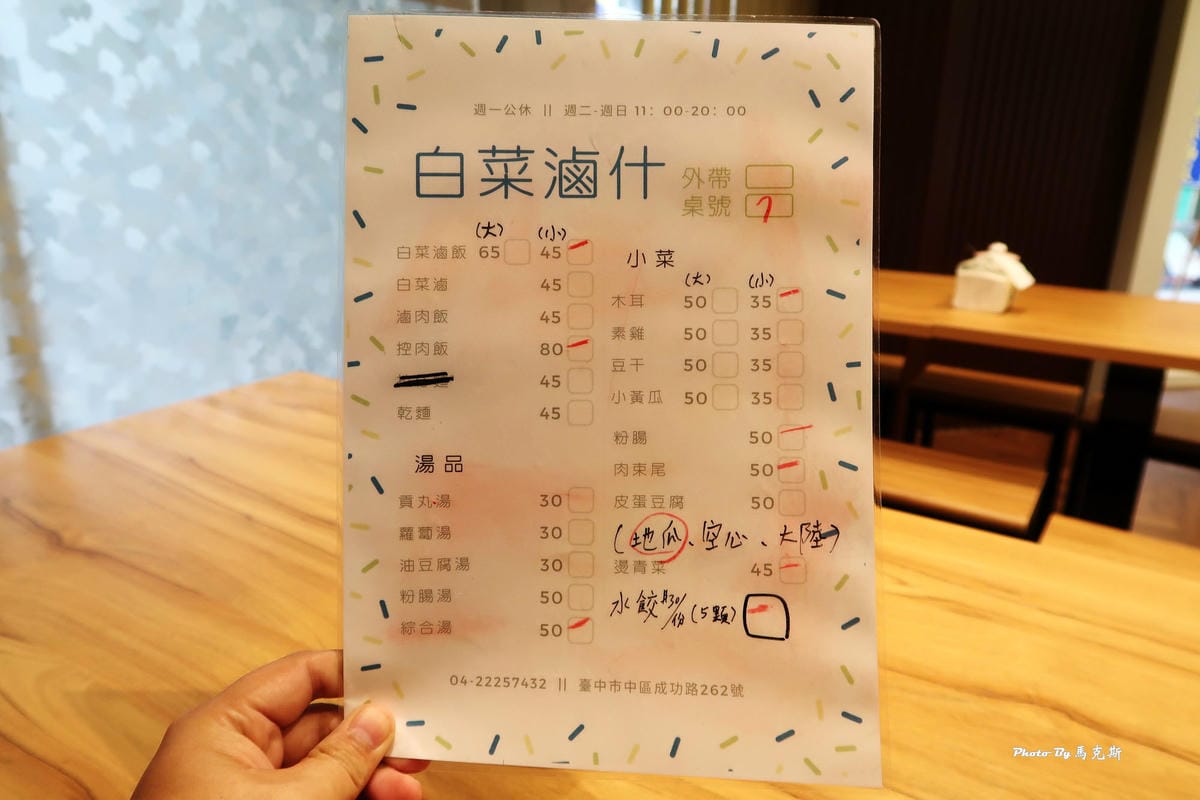 週一公休 || 週二-週日 11：00-20：00
白菜滷什
外帶
桌號 7
(大) (小)
白菜滷飯 65 45
白菜滷 45
滷肉飯 45
控肉飯 80
45
乾麵 45
湯品
貢丸湯 30
蘿蔔湯 30
油豆腐湯 30
粉腸湯 50
綜合湯 50
小菜
(大) (小)
木耳 50 35
素雞 50 35
豆干 50 35
小黃瓜 50 35
粉腸 50
肉束尾 50
皮蛋豆腐 50
(地瓜、空心、大陸)
燙青菜 45
水餃 $30/份 (5顆)
04-22257432 || 臺中市中區成功路262號
Photo By 馬克斯